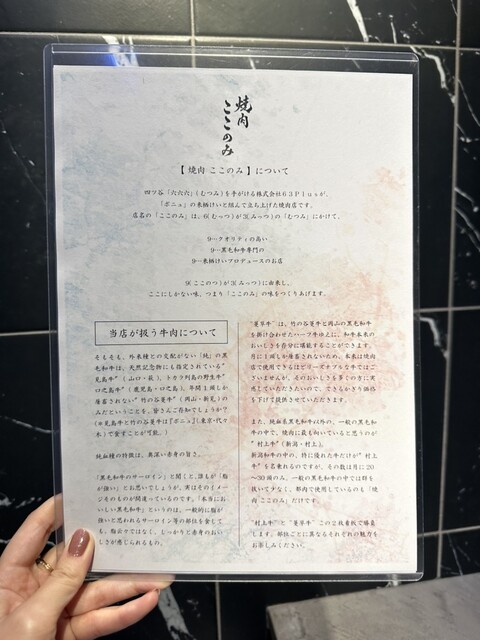 焼肉
ここのみ
【 焼肉 ここのみ 】について
四ツ谷「六六六」(むつみ)を手がける株式会社６３Ｐｌｕｓが、
「ボニュ」の来栖けいと組んで立ち上げた焼肉店です。
店名の「ここのみ」は、6(むっつ)が3(みっつ)の「むつみ」にかけて、
9…クオリティの高い
9…黒毛和牛専門の
9…来栖けいプロデュースのお店
9(ここのつ)が3(みっつ)に由来し、
ここにしかない味、つまり「ここのみ」の味をつくりあげます。
当店が扱う牛肉について
そもそも、外来種との交配がない「純」の黒
毛和牛は、天然記念物にも指定されている"
見島牛"（山口・萩)、トカラ列島の野生牛"
口之島牛"（鹿児島・口之島)、年間１頭しか
屠畜されない"竹の谷蔓牛"（岡山・新見）の
みだということを、皆さんご存知でしょうか？
(※見島牛と竹の谷蔓牛は『ボニュ』(東京・代々
木）で食すことが可能。)
純血種の特徴は、奥深い赤身の旨さ。
「黒毛和牛のサーロイン」と聞くと、誰もが「脂
が強い」とお思いでしょうが、実はそのイメー
ジそのものが間違っているのです。「本当にお
いしい黒毛和牛」というのは、一般的に脂が
強いと思われるサーロイン等の部位を食して
も、脂云々ではなく、しっかりと赤身のおい
しさが感じられるもの。
"蔓草牛"は、竹の谷蔓牛と岡山の黒毛和牛
を掛け合わせたハーフ牛ゆえに、和牛本来の
おいしさを存分に堪能することができます。
月に１頭しか屠畜されないため、本来は焼肉
店で使用できるほどリーズナブルな牛ではご
ざいませんが、そのおいしさを多くの方に実
感していただきたいので、できるかぎり価格
を下げて提供させていただきます。
また、純血系黒毛和牛以外の、一般の黒毛和
牛の中で、焼肉に最も向いていると思うのが
"村上牛"（新潟・村上）。
新潟和牛の中の、特に優れた牛だけが"村上
牛"を名乗れるのですが、その数は月に20
～30頭のみ。一般の黒毛和牛の中では群を
抜いて少なく、都内で使用しているのも「焼
肉 ここのみ」だけです。
"村上牛"と"蔓草牛"この２枚看板で勝負
します。部位ごとに異なるそれぞれの魅力を
お楽しみください。